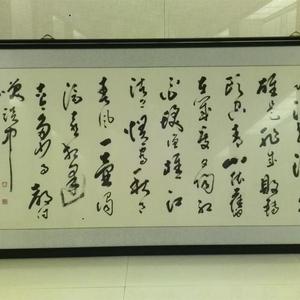 雄是非成败转
头空青山依旧
在几度夕阳红
白发渔樵江
渚上惯看秋月
春风一壶浊
酒喜相逢
古今多少事都付
笑谈中